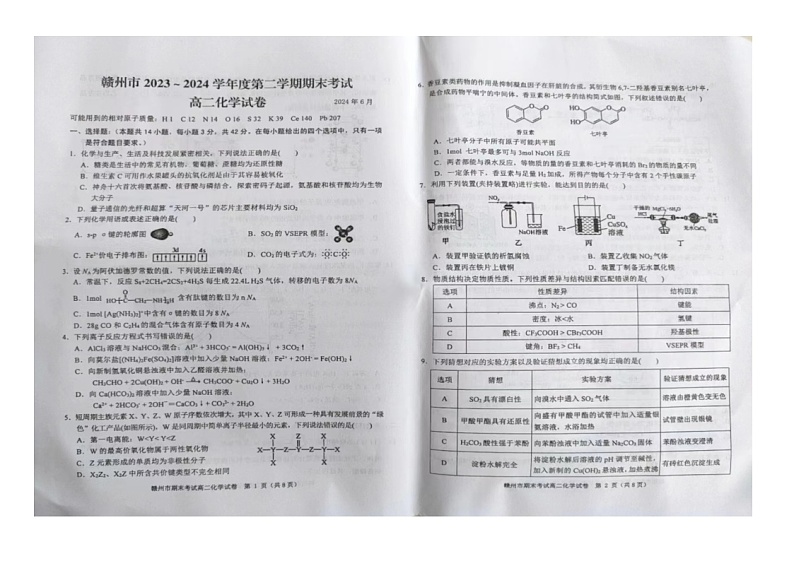 赣州市 2023～2024 学年度第二学期期末考试
高二化学试卷
2024 年 6 月
可能用到的相对原子质量：H 1 C 12 N 14 O 16 S 32 K 39 Ce 140 Pb 207
一、选择题：（本题共 14 小题，每小题 3 分，共 42 分，在每小题给出的四个选项中，只有一项
是符合题目要求。）
1. 化学与生产、生活及科技发展紧密相关，下列说法正确的是( )
A．糖类是生活中的常见有机物，葡萄糖、蔗糖均为还原性糖
B．维生素 C 可用作水果罐头的抗氧化剂是由于其容易被氧化
C．神舟十六首次将氨基酸、核苷酸与磷结合，探索密码子起源，氨基酸和核苷酸均为生物
大分子
D．量子通信的光纤和超算“天河一号”的芯片主要材料均为 SiO₂
2. 下列化学用语或表述正确的是( )
A．s-p σ键的轮廓图
B．SO₂ 的 VSEPR 模型：
C．Fe²⁺价电子排布图：
3d 4s
D．CO₂的电子式为：
3. 设 Nᴀ 为阿伏加德罗常数的值，下列说法正确的是( )
A．常温下，反应 S₈+2CH₄=2CS₂+4H₂S 每生成 22.4L H₂S 气体，转移的电子数为 8Nᴀ
B．1mol
含有肽键的数目为 n Nᴀ
C．1mol [Ag(NH₃)₂]⁺中含有 σ 键的数目为 8 Nᴀ
D．28g CO 和 C₂H₄ 的混合气体含有原子数目为 4 Nᴀ
4. 下列离子反应方程式书写错误的是( )
A．AlCl₃ 溶液与 NaHCO₃ 混合：Al³⁺ + 3HCO₃⁻ = Al(OH)₃↓ + 3CO₂↑
B．向莫尔盐[(NH₄)₂Fe(SO₄)₂]溶液中加入少量 NaOH 溶液：Fe²⁺ + 2OH⁻= Fe(OH)₂↓
C．向新制氢氧化铜悬浊液中加入乙醛溶液并加热：
CH₃CHO + 2Cu(OH)₂ + OH⁻ △→ CH₃COO⁻+ Cu₂O↓ + 3H₂O
D．向 Ca(HCO₃)₂ 溶液中加入少量 NaOH 溶液：
Ca²⁺ + 2HCO₃⁻ + 2OH⁻＝CaCO₃↓ + CO₃²⁻ + 2H₂O
5. 短周期主族元素 X、Y、Z、W 原子序数依次增大，其中 X、Y、Z 可形成一种具有发展前景的“绿
色”化工产品(如图所示)。W 是同周期中简单离子半径最小的元素，下列说法错误的是( )
A．第一电离能：W< Y< Z
B．W 的最高价氧化物属于两性氧化物
C．Z 元素形成的单质均为非极性分子
D．X₂Z₂、X₃Z 中所含共价键类型不完全相同
X Z X
X—Y—Z—Y—Z—Y—X
X X
赣州市期末考试高二化学试卷 第 1 页（共 8 页）
6. 香豆素类药物的作用是抑制凝血因子在肝脏的合成，其衍生物 6,7-二羟基香豆素别名七叶亭，
是合成药物平喘宁的中间体。香豆素和七叶亭的结构简式如图，下列叙述错误的是( )
香豆素 七叶亭
A．七叶亭分子中所有原子可能共平面
B．1mol 七叶亭最多可与 3mol NaOH 反应
C．两者都能与溴水反应，等物质的量的香豆素和七叶亭消耗的 Br₂ 的物质的量不同
D．一定条件下，香豆素与足量 H₂ 加成，所得产物每个分子中含有 2 个手性碳原子
7. 利用下列装置(夹持装置略)进行实验，能达到目的的是( )
甲 乙 丙 丁
A．装置甲验证铁的析氢腐蚀
B．装置乙收集 NO₂ 气体
C．装置丙在铁片上镀铜
D．装置丁制备无水氯化镁
8. 物质结构决定物质性质。下列性质差异与结构因素匹配错误的是( )
选项 性质差异 结构因素
A 沸点：N₂ > CO 键能
B 密度：冰<水 氢键
C 酸性：CF₃COOH > CBr₃COOH 羟基极性
D 键角：BF₃ > CH₄ VSEPR 模型
9. 下列猜想对应的实验方案以及验证猜想成立的现象均正确的是( )
选项 猜想 实验方案 验证猜想成立的现象
A SO₂ 具有漂白性 向溴水中通入 SO₂ 气体 溶液由橙黄色变无色
B 甲酸甲酯具有还原性 向盛有甲酸甲酯的试管中加入适量银
氨溶液，水浴加热 试管壁出现银镜
C H₂CO₃ 酸性强于苯酚 向苯酚浊液中加入适量 Na₂CO₃ 固体 苯酚浊液变澄清
D 淀粉水解完全 将淀粉水解后溶液的 pH 调节至碱性，
加入新制的 Cu(OH)₂ 悬浊液，加热煮沸 有砖红色沉淀生成
赣州市期末考试高二化学试卷 第 2 页（共 8 页）